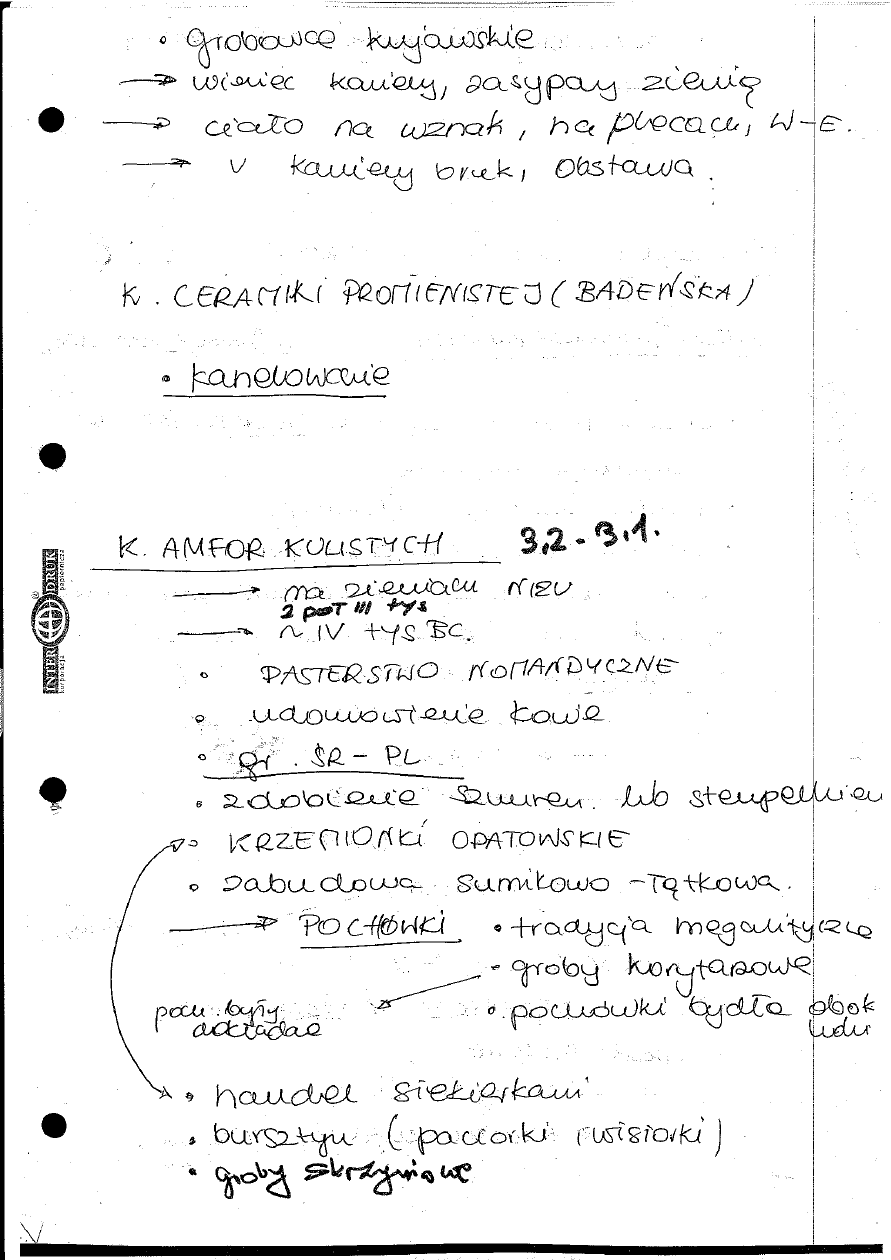 • grobowce kujawskie
→ wieniec kamieny, zasypany ziemią
→ ciało na wznak, na plecach, W-E.
→ v kamieny bruk, obstawa.
K. CERAMIKI PROMIENISTEJ (BADEŃSKA)
• kanelowanie
K. AMFOR KULISTYCH 3,2 - 3,1.
→ na ziemiach NIŻU
2 poł III tys
→ ~ IV tys BC.
• PASTERSTWO NOMANDYCZNE
• udomowienie konie
• gr. ŚR - PL
• zdobienie sznurem lub stempelkiem
• KRZEMIONKI OPATOWSKIE
• zabudowa sumikowo - łątkowa.
→ POCHÓWKI • tradycja megalityczne
- groby korytarzowe
• pochówki bydła obok
ludzi
poch. były
dokładae
• handel siekierkami
• bursztyn (paciorki i wisiorki)
• groby skrzyniowe
INTER DRUK
korporacja papiernicza